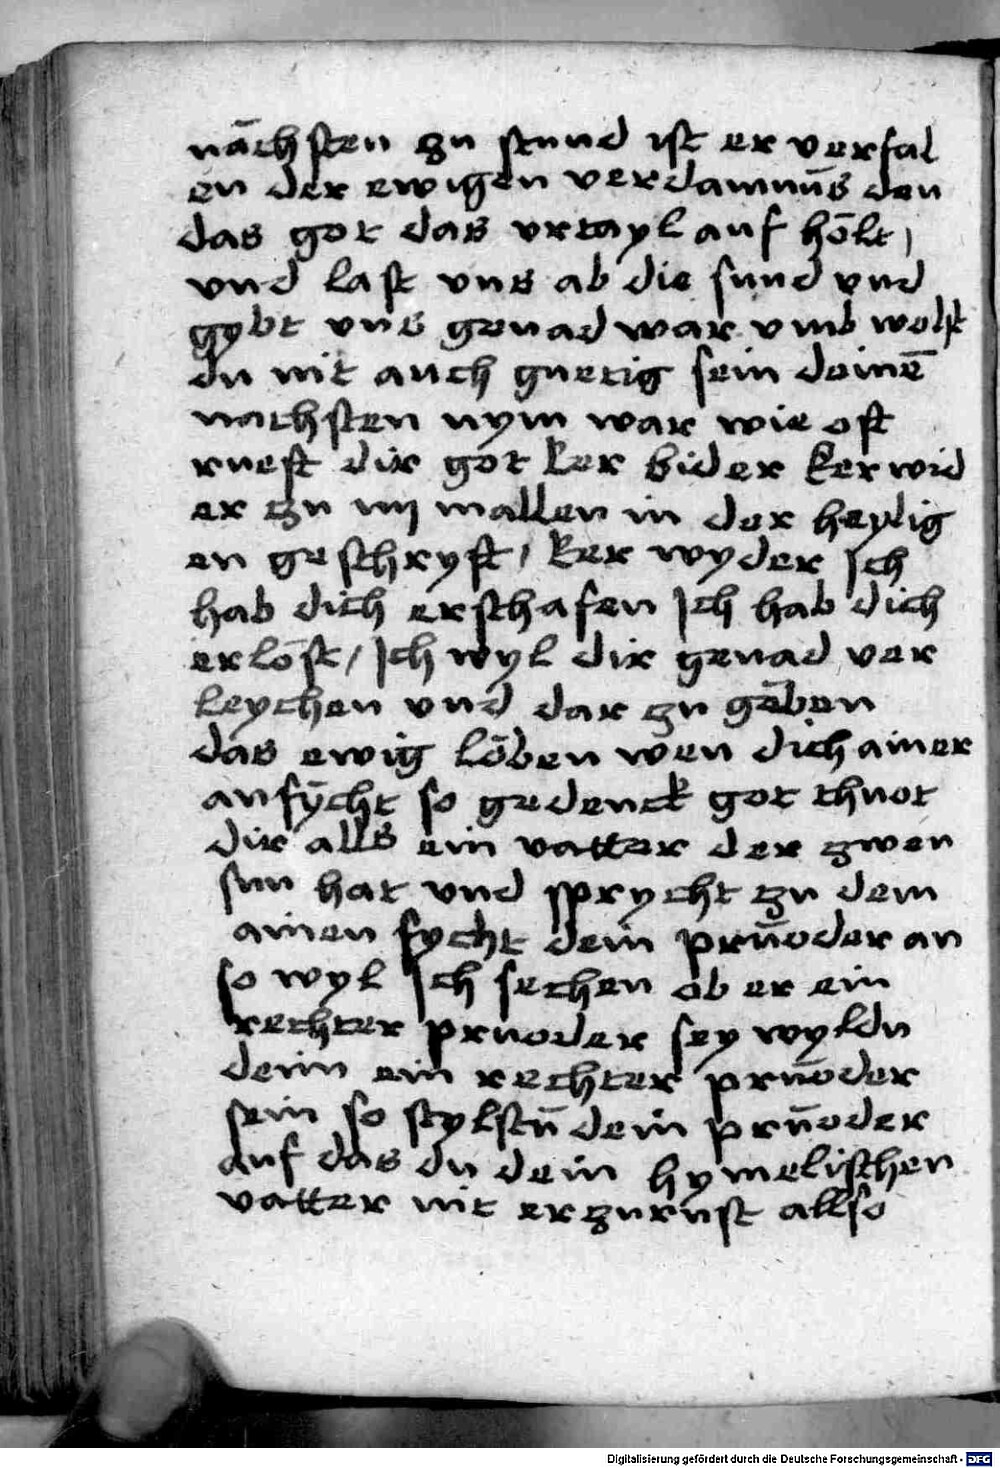 nāchsten zu stund ist er verfal
en der ewigen verdamnūs den
das got das vrtayl auf hōlt /
vnd last vns ab die sund vnd
gybt vns genad war vmb wolst
du nit auch guetig sein deinē
nachsten nym war wie oft
rueft dir got ker bider ker wid
er zu iiij mallen in der heylig
en geschryft / ker wyder Ich
hab dich erschafen Ich hab dich
erlōst / Ich wyl dir genad ver
leychen vnd dar zu gēben
das ewig lōben wen dich ainer
anfycht so gedenck got thuot
dir alls ein vatter der zwen
sun hat vnd sprycht zu dem
ainen fycht dein prūoder an
so wyl Ich sechen ob er ein
rechter pruoder sey wyldu
denn ein rechter prūoder
sein so stylstū dein prūoder
auf das du dein hymelischen
vatter nit erzurnst allso
Digitalisierung gefördert durch die Deutsche Forschungsgemeinschaft - DFG